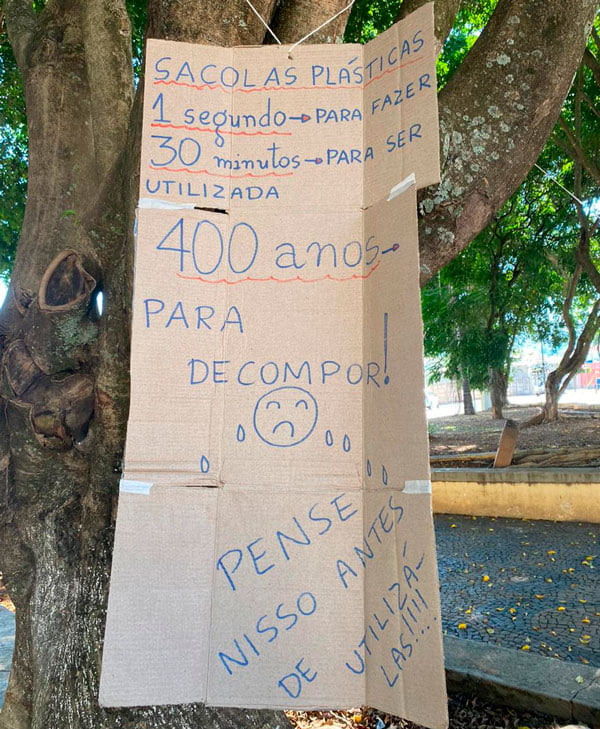 SACOLAS PLÁSTICAS
1 segundo → PARA FAZER
30 minutos → PARA SER
UTILIZADA
400 anos →
PARA
DECOMPOR!
PENSE
NISSO ANTES
DE UTILIZÁ-
LAS!!!!!